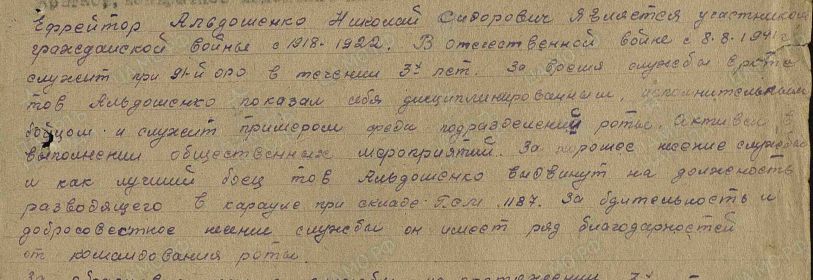 Ефрейтор Альдошенко Николай Сидорович является участником
гражданской войны с 1918-1922. В отечественной войне с 8.8.1941 г
служит при 91-й оро в течении 3х лет. За время службы в роте
тов Альдошенко показал себя дисциплинированным, исполнительным
бойцом и служит примером среди подразделений роты. Активен в
выполнении общественных мероприятий. За хорошее несение службы
и как лучший боец тов Альдошенко выдвинут на должность
разводящего в карауле при складе Г.С.М. 1187. За бдительность и
добросовестное несение службы он имеет ряд благодарностей
от командования роты.